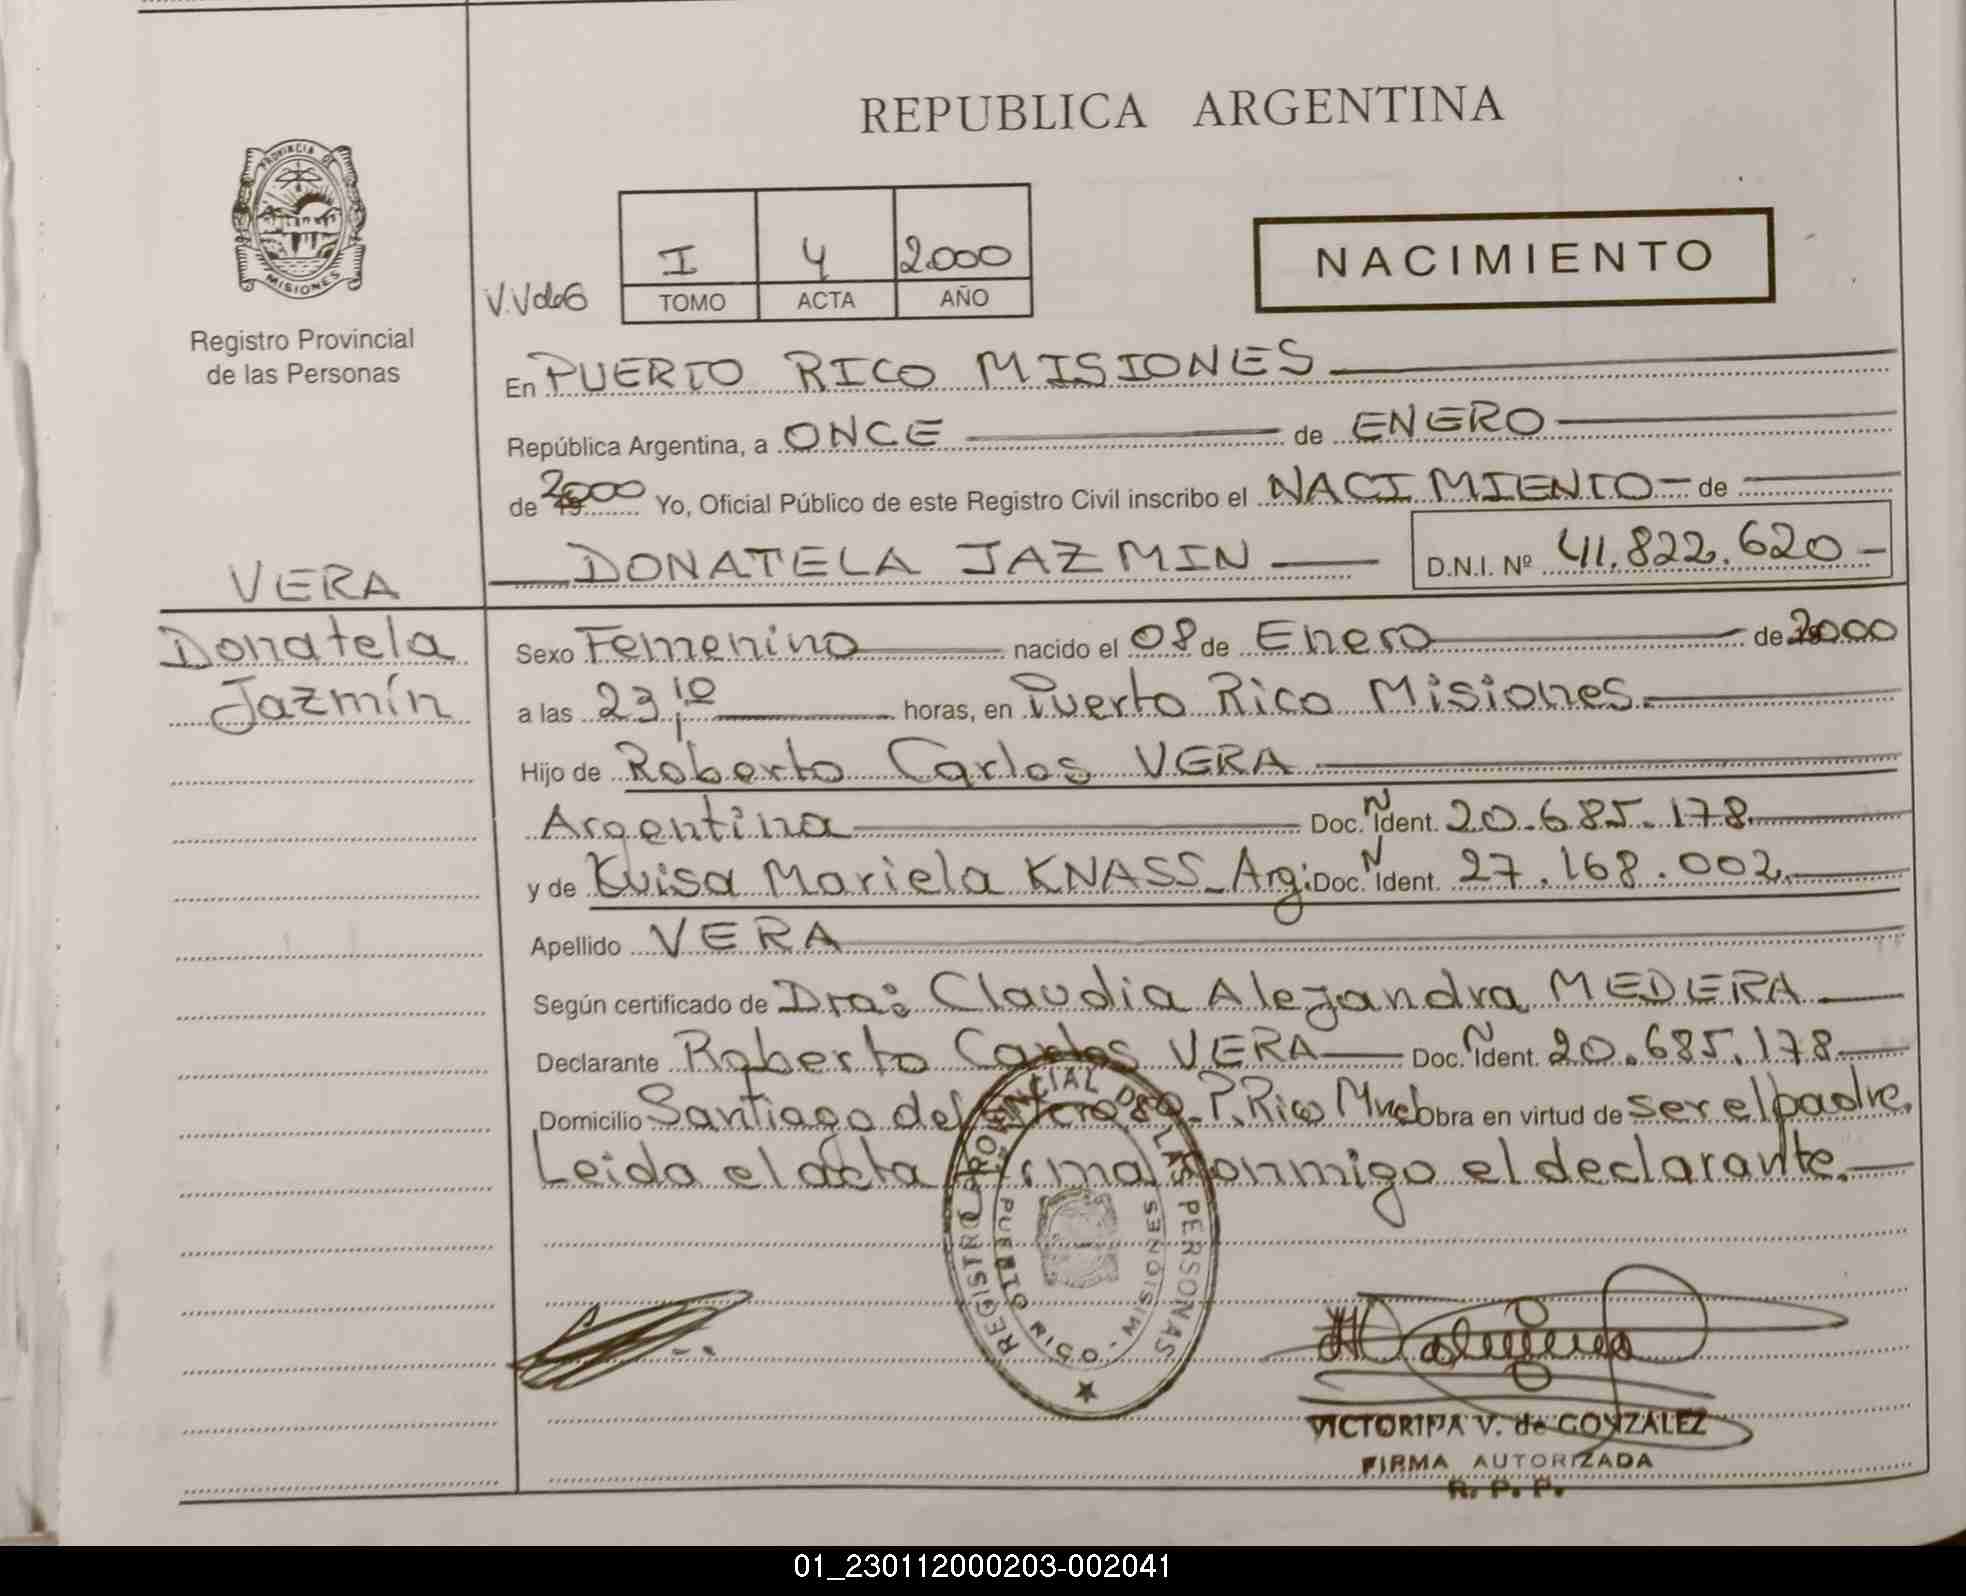 REPUBLICA ARGENTINA
PROVINCIA DE
MISIONES
Registro Provincial
de las Personas
V.V de G
I 4 2000
TOMO ACTA AÑO
NACIMIENTO
En PUERTO RICO MISIONES
República Argentina, a ONCE de ENERO
de 2000 Yo, Oficial Público de este Registro Civil inscribo el NACIMIENTO de
DONATELA JAZMIN D.N.I. Nº 41.822.620
VERA
Donatela
Jazmín
Sexo Femenino nacido el 08 de Enero de 2000
a las 23,10 horas, en Puerto Rico Misiones
Hijo de Roberto Carlos VERA
Argentina Doc. Ñ Ident. 20.685.178
y de Luisa Mariela KNASS - Arg: Doc. N Ident. 27.168.002
Apellido VERA
Según certificado de Dra: Claudia Alejandra MEDERA
Declarante Roberto Carlos VERA Doc. Ñ Ident. 20.685.178
Domicilio Santiago del Estero - P. Rico Mnes Obra en virtud de ser el padre.
Leida el acta firma conmigo el declarante.
REGISTRO PROVINCIAL DE LAS PERSONAS
PUERTO RICO - MISIONES
VICTORINA V. de GONZALEZ
FIRMA AUTORIZADA
R. P. P.
01_230112000203-002041